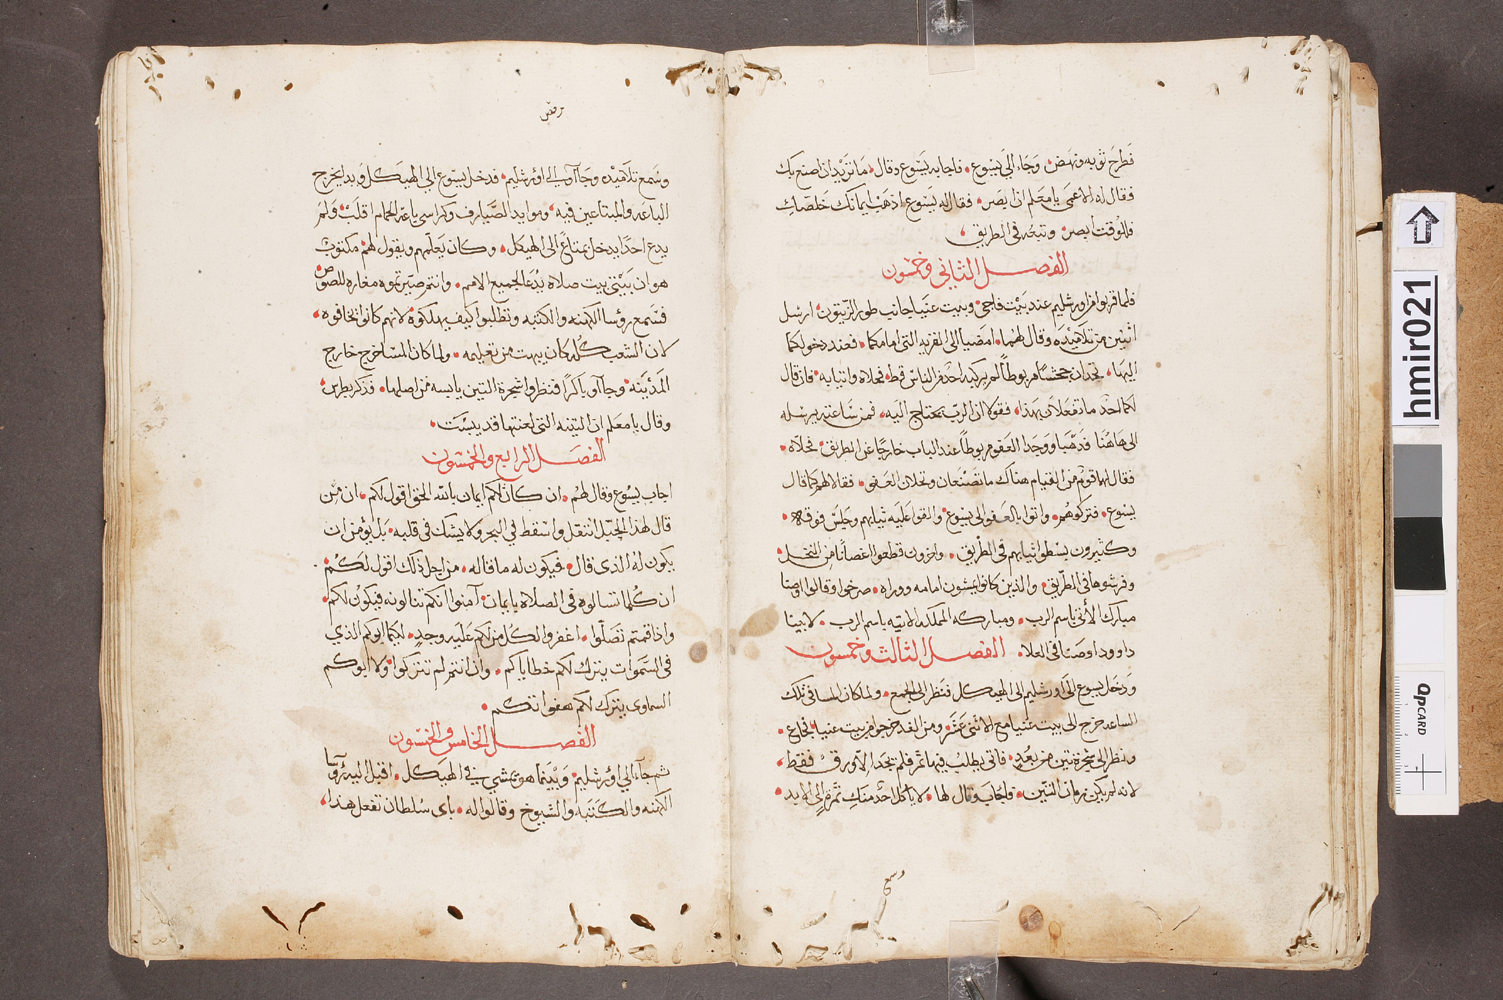 فطرح ثوبه ونهض وجاء الى يسوع فاجابه يسوع وقال ما تريد ان اصنع بك
فقال له الاعمى يا معلم ان ابصر فقال له يسوع اذهب ايمانك خلصك
فللوقت ابصر وتبعه في الطريق
الفصل الثاني وخمسون
فلما قربوا من اورشليم عند بيت فاجي وبيت عنيا جانب طور الزيتون ارسل
اثنين من تلاميذه وقال لهما امضيا الى القريه التي امامكما فعند دخولكما
اليها تجدان جحشا مربوطا لم يركبه احد من الناس قط فحلاه واتيا به فان قال
لكما احد ما تفعلان بهذا فقولا ان الرب يحتاج اليه فمن ساعته يرسله
الى هاهنا فذهبا ووجدا العفو مربوطا عند الباب خارجا عن الطريق فحلاه
فقال لهما قوم من القيام هناك ما تصنعان وتحلان العفو فقالا لهم كما قال
يسوع فتركوهم واتوا بالعفو الى يسوع والقوا عليه ثيابهم وجلس فوقه
وكثيرون بسطوا ثيابهم في الطريق واخرون قطعوا اغصانا من النخل
وفرشوها في الطريق والذين كانوا يمشون امامه ووراه صرخوا وقالوا اوصنا
مبارك الاتي باسم الرب ومباركه المملكه الاتيه باسم الرب لابينا
داوود اوصنا في العلا الفصل الثالث وخمسون
ودخل يسوع الى اورشليم الى الهيكل فنظر الى الجمع ولما كان المسا في تلك
الساعه خرج الى بيت عنيا مع الاثني عشر ومن الغد خرجوا من بيت عنيا فجاع
ونظر الى شجرة تين من بعد فاتى يطلب فيها ثمر فلم يجد الا ورق فقط
لانه لم يكن زمان التين فاجاب وقال لها لا ياكل احد منك ثمرة الى الابد
وسمع
مرقس
وسمع تلاميذه وجاآوا الى اورشليم فدخل يسوع الى الهيكل وبدا يخرج
الباعه والمبتاعين فيه وموايد الصيارف وكراسي باعة الحمام اقلب ولم
يدع احدا يدخل بمتاع الى الهيكل وكان يعلمهم ويقول لهم مكتوب
هو ان بيتي بيت صلاه يدعا لجميع الامم وانتم صيرتموه مغاره للصوص
فسمع رؤسا الكهنه والكتبه وتطلبوا كيف يهلكوه لانهم كانوا يخافوه
لان الشعب كله كان يبهت من تعليمه ولما كان المسا خرج خارج
المدينه وجاآوا باكرا فنظروا شجرة التين يابسه من اصلها فذكر بطرس
وقال يا معلم ان التينه التي لعنتها قد يبست
الفصل الرابع والخمسون
اجاب يسوع وقال لهم ان كان لكم ايمان بالله الحق اقول لكم ان من
قال لهذا الجبل انتقل واسقط في البحر ولا يشك في قلبه بل يؤمن ان
يكون له الذي قال فيكون له ما قاله من اجل ذلك اقول لكم
ان كلما تسالوه في الصلاه بايمان آمنوا انكم تنالونه فيكون لكم
واذا قمتم تصلوا اغفروا لكل من لكم عليه وجد لكيما ابوكم الذي
في السموات يترك لكم خطاياكم وان انتم لم تتركوا ولا ابوكم
السماوي يترك لكم هفواتكم
الفصل الخامس والخمسون
ثم جاء الى اورشليم وبينما هو يمشي في الهيكل اقبل اليه رؤسا
الكهنه والكتبه والشيوخ وقالوا له باي سلطان تفعل هذا
hmir021
QPCARD